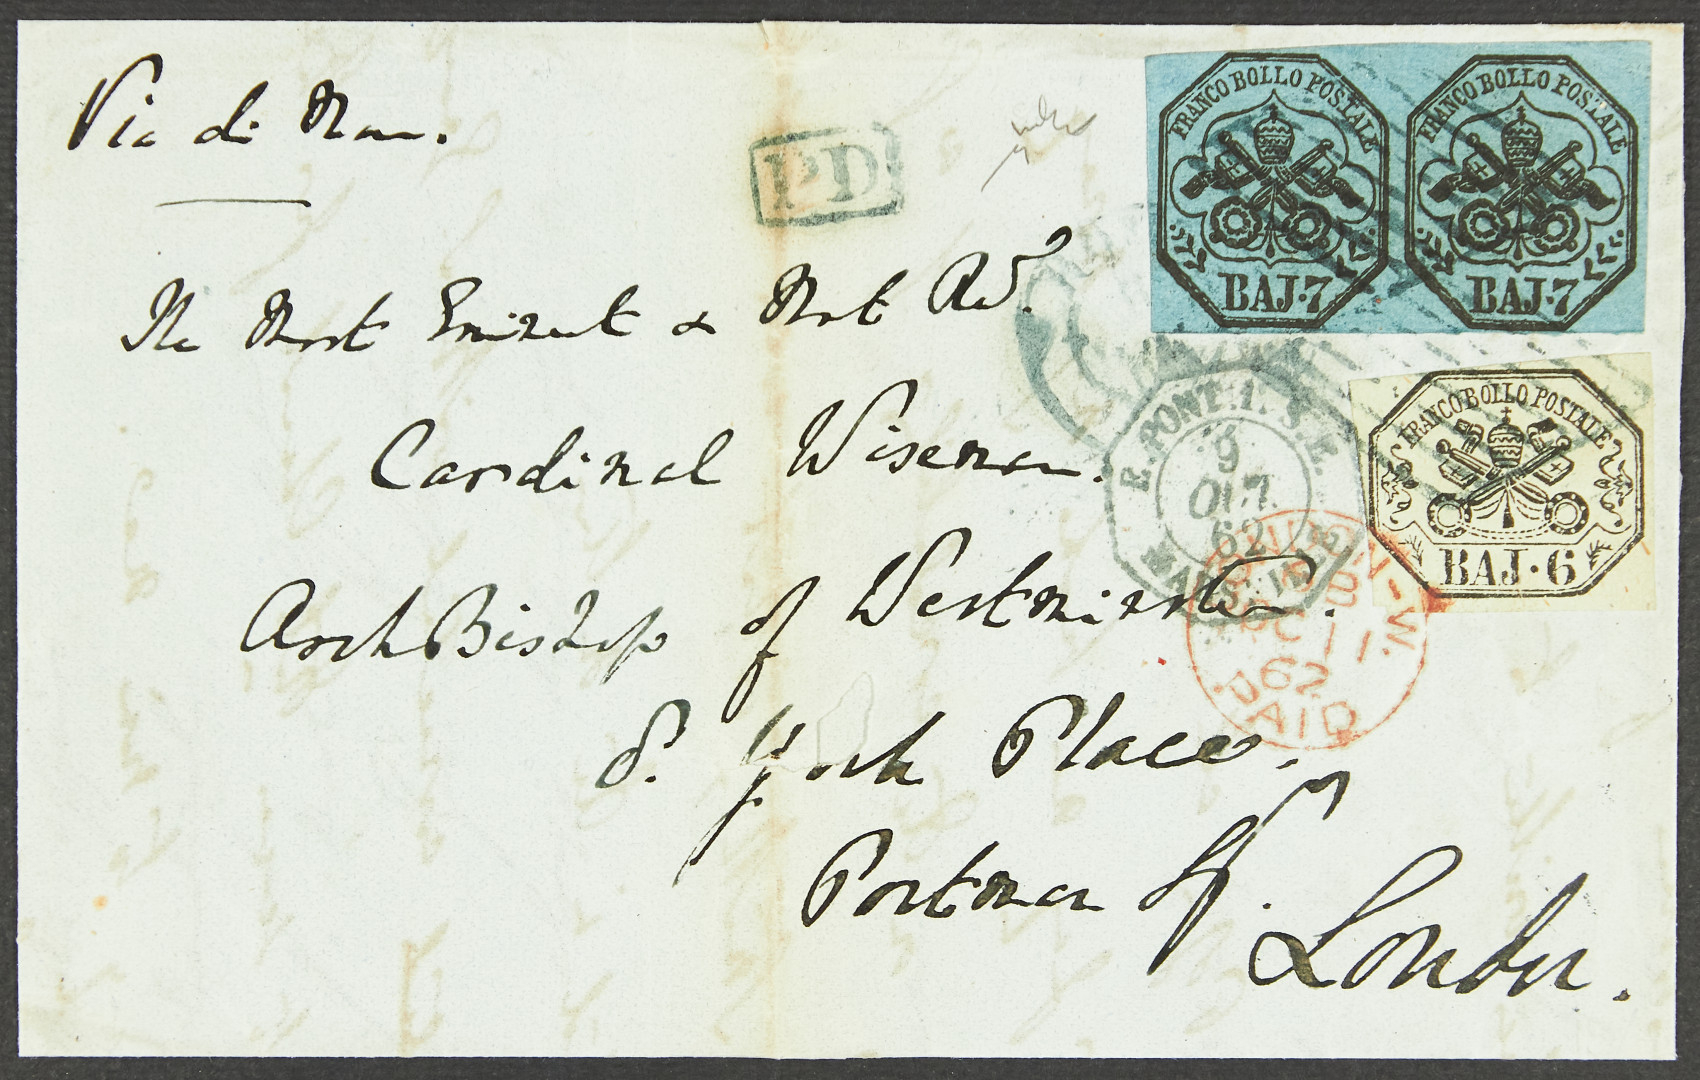 Via di Mare.
PD
FRANCO BOLLO POSTALE
BAJ·7
FRANCO BOLLO POSTALE
BAJ·7
FRANCO BOLLO POSTALE
BAJ·6
The Most Eminent & Most Revd.
Cardinal Wiseman.
ArchBishop of Westminster.
8. York Place.
Portman Sqr.
London.
E. PONT. 1. S. E.
9
OCT.
62
LONDON-W.
OC 11
62
PAID